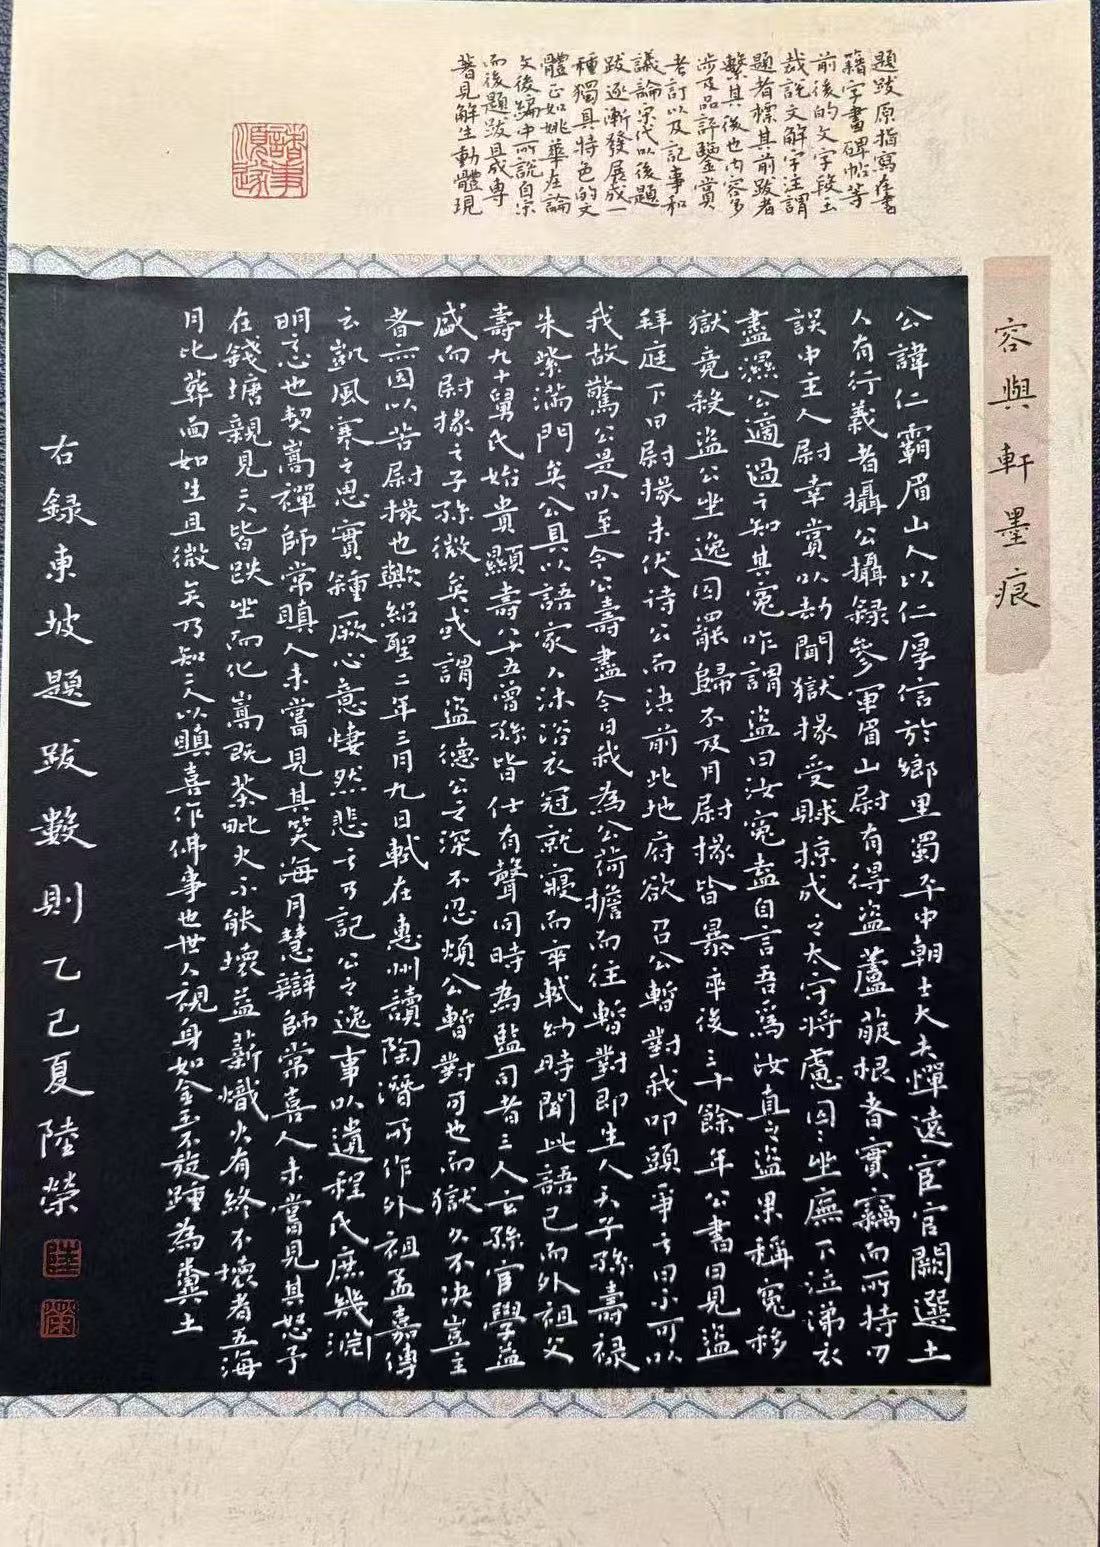 題跋原指寫在書
籍字畫碑帖等
前後的文字段玉
裁說文解字注謂
題者標其前跋者
繫其後也內容多
涉及品評鑒賞
考訂以及記事和
議論宋代以後題
跋逐漸發展成一
種獨具特色的文
體正如姚華在論
文後編中所說自宋
而後題跋且成專
著見解生動體現
諸事順遂
容與軒墨痕
公諱仁霸眉山人以仁厚信於鄉里蜀平中朝士大夫憚遠宦官闕選土
人有行義者攝公攝錄參軍眉山尉有得盜蘆菔根者實竊而所持刃
誤中主人尉幸賞以劫聞獄掾受賕掠成之太守將慮囚囚坐廡下泣涕衣
盡濕公適過之知其冤咋謂盜曰汝冤盍自言吾為汝直之盜果稱冤移
獄竟殺盜公坐逸囚罷歸不及月尉掾皆暴卒後三十餘年公晝日見盜
拜庭下曰尉掾未伏待公而決前此地府欲召公暫對我叩頭爭之曰不可以
我故驚公是以至今公壽盡今日我為公荷擔而往暫對即生人天子孫壽祿
朱紫滿門矣公具以語家人沐浴衣冠就寢而卒軾幼時聞此語已而外祖父
壽九十舅氏始貴顯壽八十五曾孫皆仕有聲同時為監司者三人玄孫官學益
盛而尉掾之子孫微矣或謂盜德公之深不忍煩公暫對可也而獄久不決豈主
者亦因以苦尉掾也歟紹聖二年三月九日軾在惠州讀陶潛所作外祖孟嘉傳
云凱風寒之思實鍾厥心意悽然悲之乃記公之逸事以遺程氏庶幾淵
明志也契嵩禪師常瞋人未嘗見其笑海月慧辯師常喜人未嘗見其怒予
在錢塘親見二人皆趺坐而化嵩既荼毗火不能壞益薪熾火有終不壞者五海
月比葬面如生且微笑乃知二人以瞋喜作佛事也世人視身如金玉不旋踵為糞土
右錄東坡題跋數則乙巳夏陸榮
陸
榮